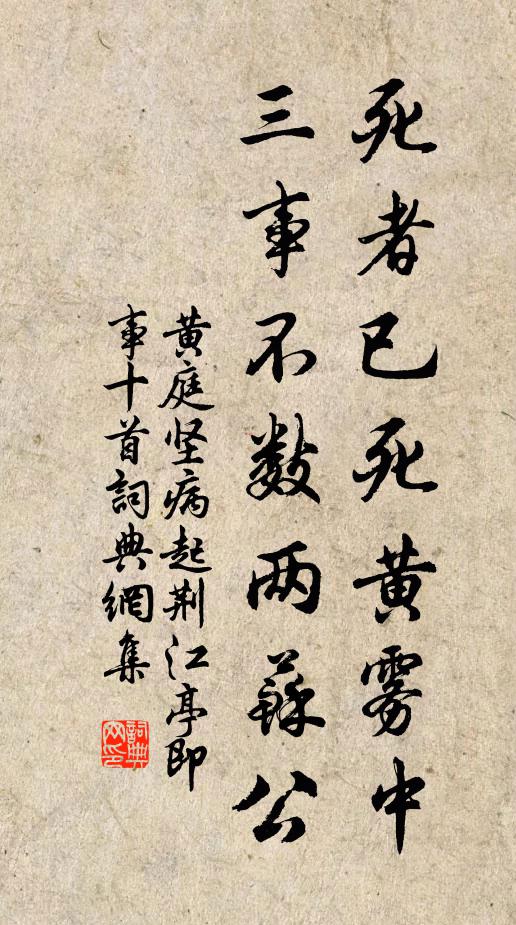 死者已死黄雾中
三事不数两蘇公
黄庭坚病起荆江亭即
事十首詞典網集
詞典网印